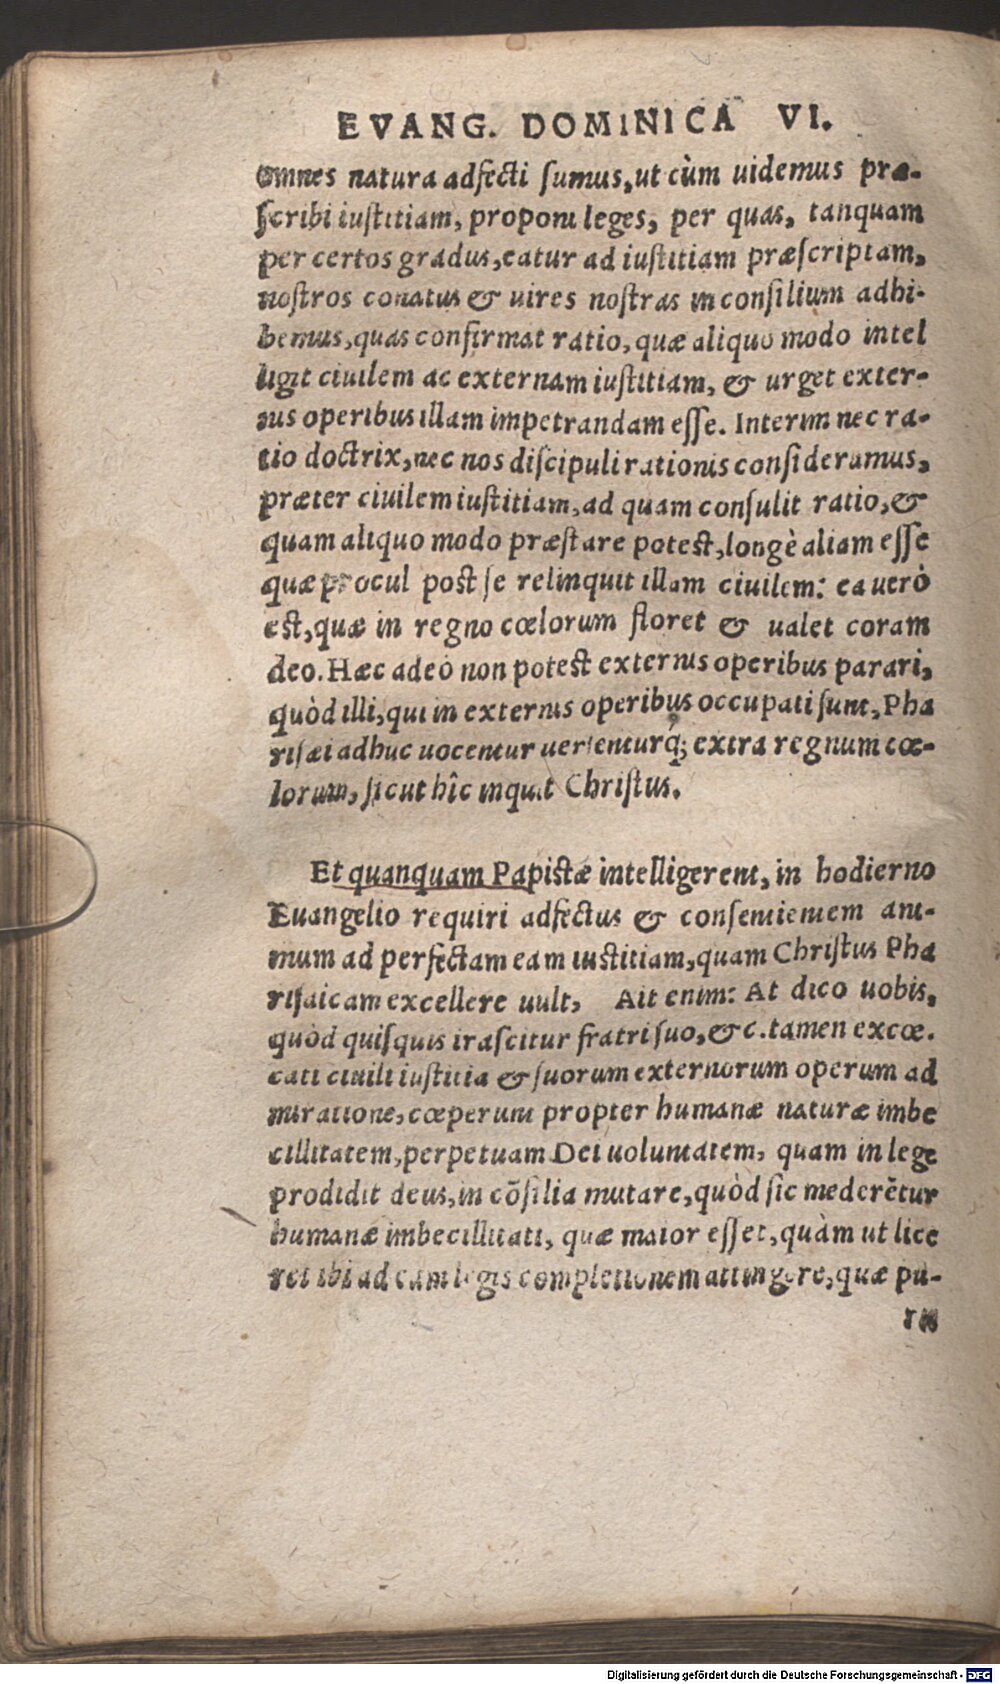 EVANG. DOMINICA VI.
omnes natura adfecti ſumus, ut cùm uidemus præ-
ſcribi iuſtitiam, proponi leges, per quas, tanquam
per certos gradus, eatur ad iuſtitiam præſcriptam,
noſtros conatus & uires noſtras in conſilium adhi-
bemus, quas confirmat ratio, quæ aliquo modo intel
ligit ciuilem ac externam iuſtitiam, & urget exter-
nis operibus illam impetrandam eſſe. Interim nec ra-
tio doctrix, nec nos diſcipuli rationis conſideramus,
præter ciuilem iuſtitiam, ad quam conſulit ratio, &
quam aliquo modo præſtare poteſt, longè aliam eſſe
quæ procul poſt ſe relinquit illam ciuilem: ea uerò
eſt, quæ in regno cœlorum floret & ualet coram
deo. Hæc adeò non poteſt externis operibus parari,
quòd illi, qui in externis operibus occupati ſunt, Pha
riſæi adhuc uocentur uerſenturq́; extra regnum cœ-
lorum, ſicut hîc inquit Chriſtus.
Et quanquam Papiſtæ intelligerent, in hodierno
Euangelio requiri adfectus & conſentientem ani-
mum ad perfectam eam iuſtitiam, quam Chriſtus Pha
riſaicam excellere uult, Ait enim: At dico uobis,
quòd quiſquis iraſcitur fratri ſuo, &c. tamen excœ-
cati ciuili iuſtitia & ſuorum externorum operum ad
miratione, cœperunt propter humanæ naturæ imbe
cillitatem, perpetuam Dei uoluntatem, quam in lege
prodidit deus, in cõſilia mutare, quòd ſic mederẽtur
humanæ imbecillitati, quæ maior eſſet, quàm ut lice
ret ibi ad eam legis completionem attingere, quæ pu-
ra
Digitalisierung gefördert durch die Deutsche Forschungsgemeinschaft - DFG